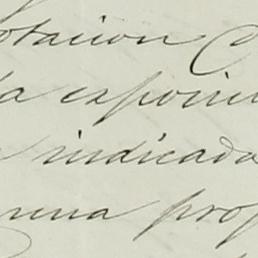 otacion C
la esponi
indicada
una prop